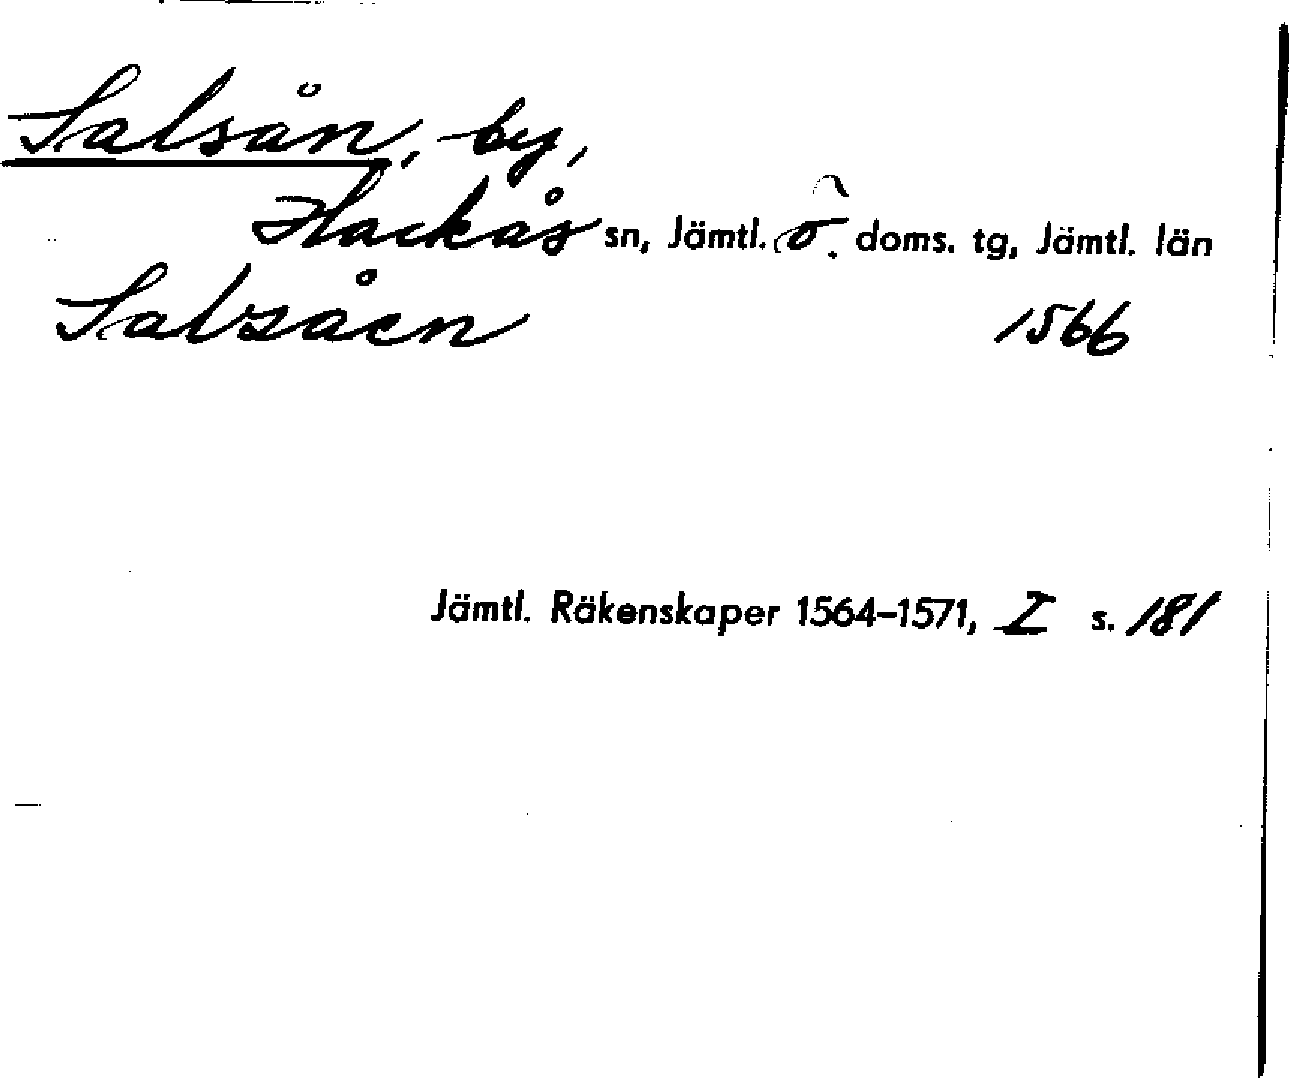 Salsån, by,
Hackås sn, Jämtl. ö. doms. tg, Jämtl. län
Salzåen 1566
Jämtl. Räkenskaper 1564–1571, I s. 181